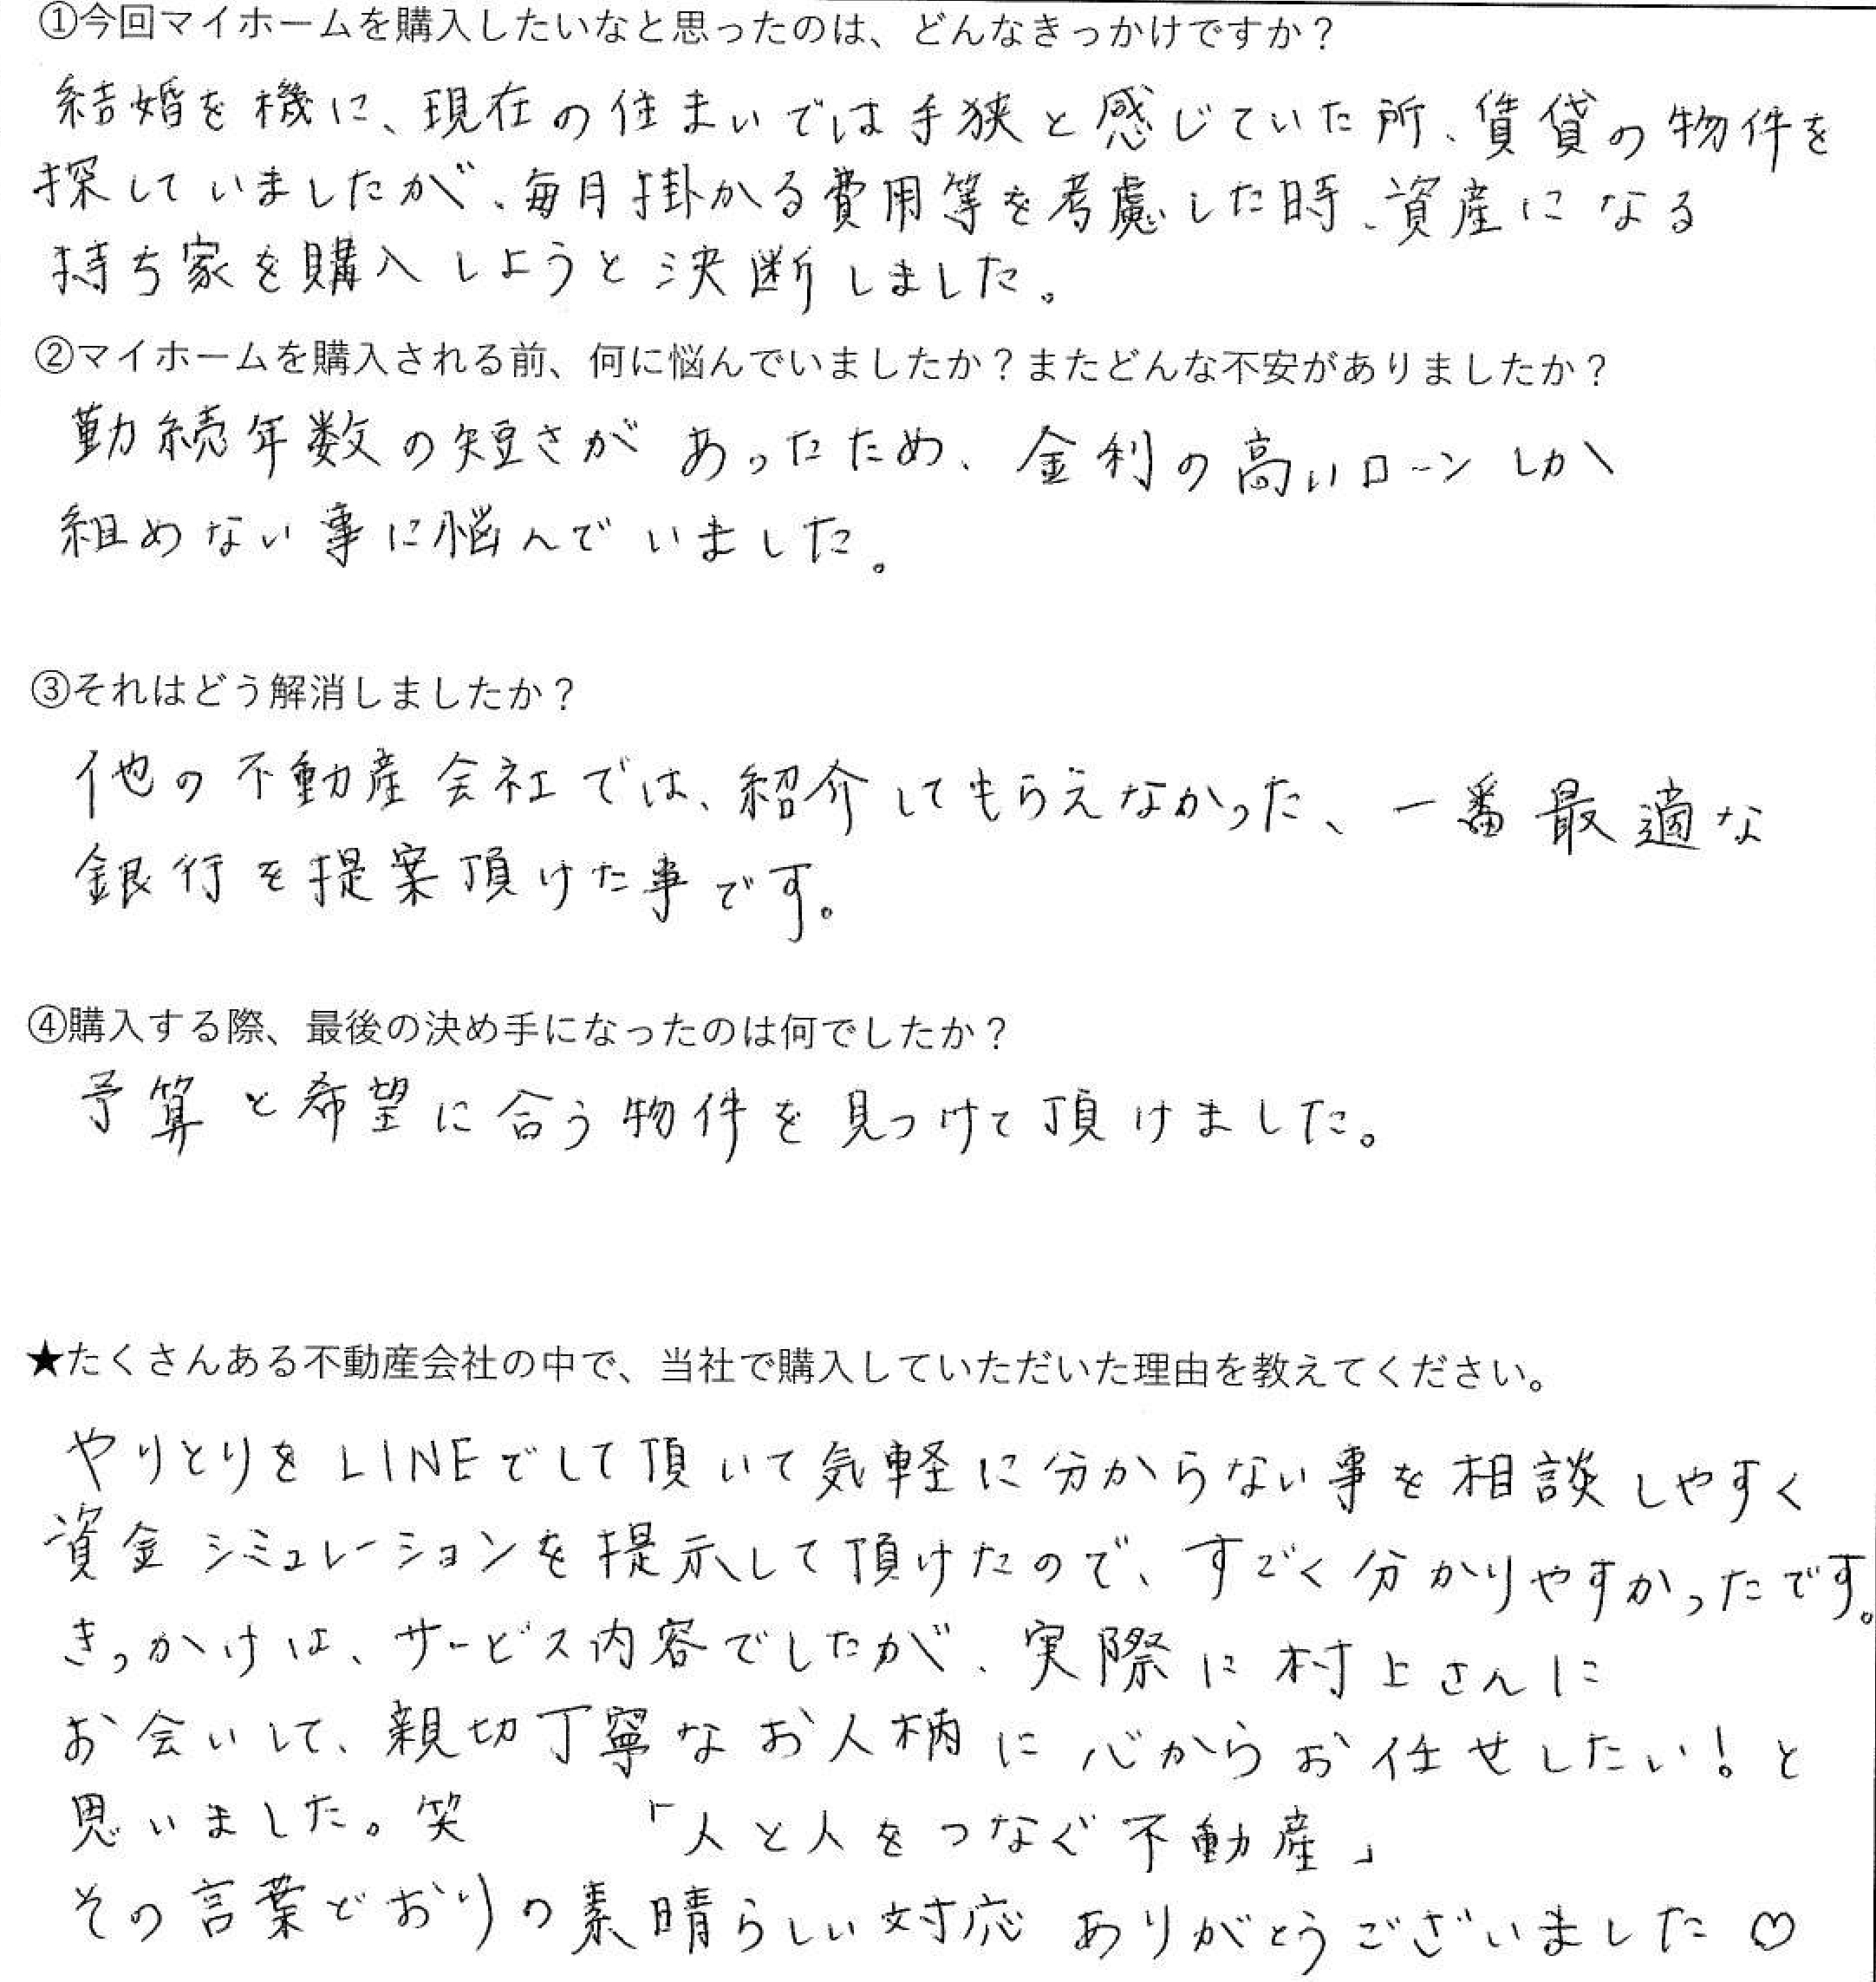 ①今回マイホームを購入したいなと思ったのは、どんなきっかけですか？
結婚を機に、現在の住まいでは手狭と感じていた所、賃貸の物件を
探していましたが、毎月掛かる費用等を考慮した時、資産になる
持ち家を購入しようと決断しました。
②マイホームを購入される前、何に悩んでいましたか？またどんな不安がありましたか？
勤続年数の短さがあったため、金利の高いローンしか
組めない事に悩んでいました。
③それはどう解消しましたか？
他の不動産会社では、紹介してもらえなかった、一番最適な
銀行を提案頂けた事です。
④購入する際、最後の決め手になったのは何でしたか？
予算と希望に合う物件を見つけて頂けました。
★たくさんある不動産会社の中で、当社で購入していただいた理由を教えてください。
やりとりをLINEでして頂いて気軽に分からない事を相談しやすく
資金シミュレーションを提示して頂けたので、すごく分かりやすかったです。
きっかけは、サービス内容でしたが、実際に村上さんに
お会いして、親切丁寧なお人柄に心からお任せしたい！と
思いました。笑　「人と人をつなぐ不動産」
その言葉どおりの素晴らしい対応ありがとうございました♡